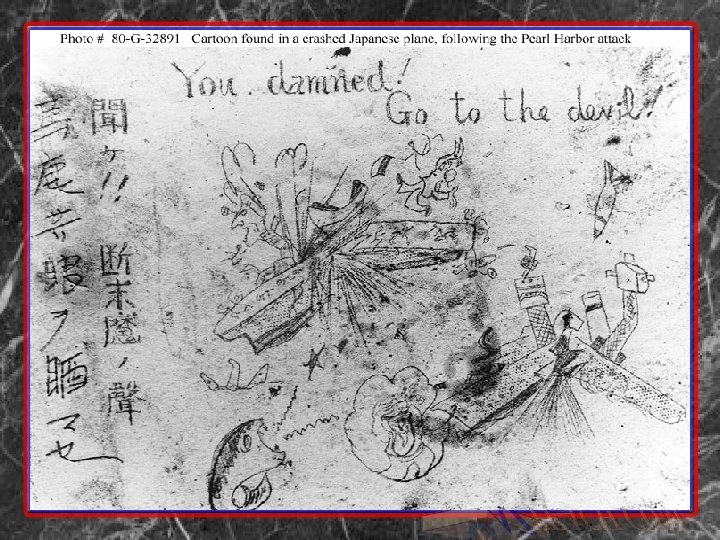 Photo # 80-G-32891 Cartoon found in a crashed Japanese plane, following the Pearl Harbor attack
You damned!
Go to the devil!
聞ケ!! 断末魔ノ聲
馬鹿共眼ヲ醒マセ